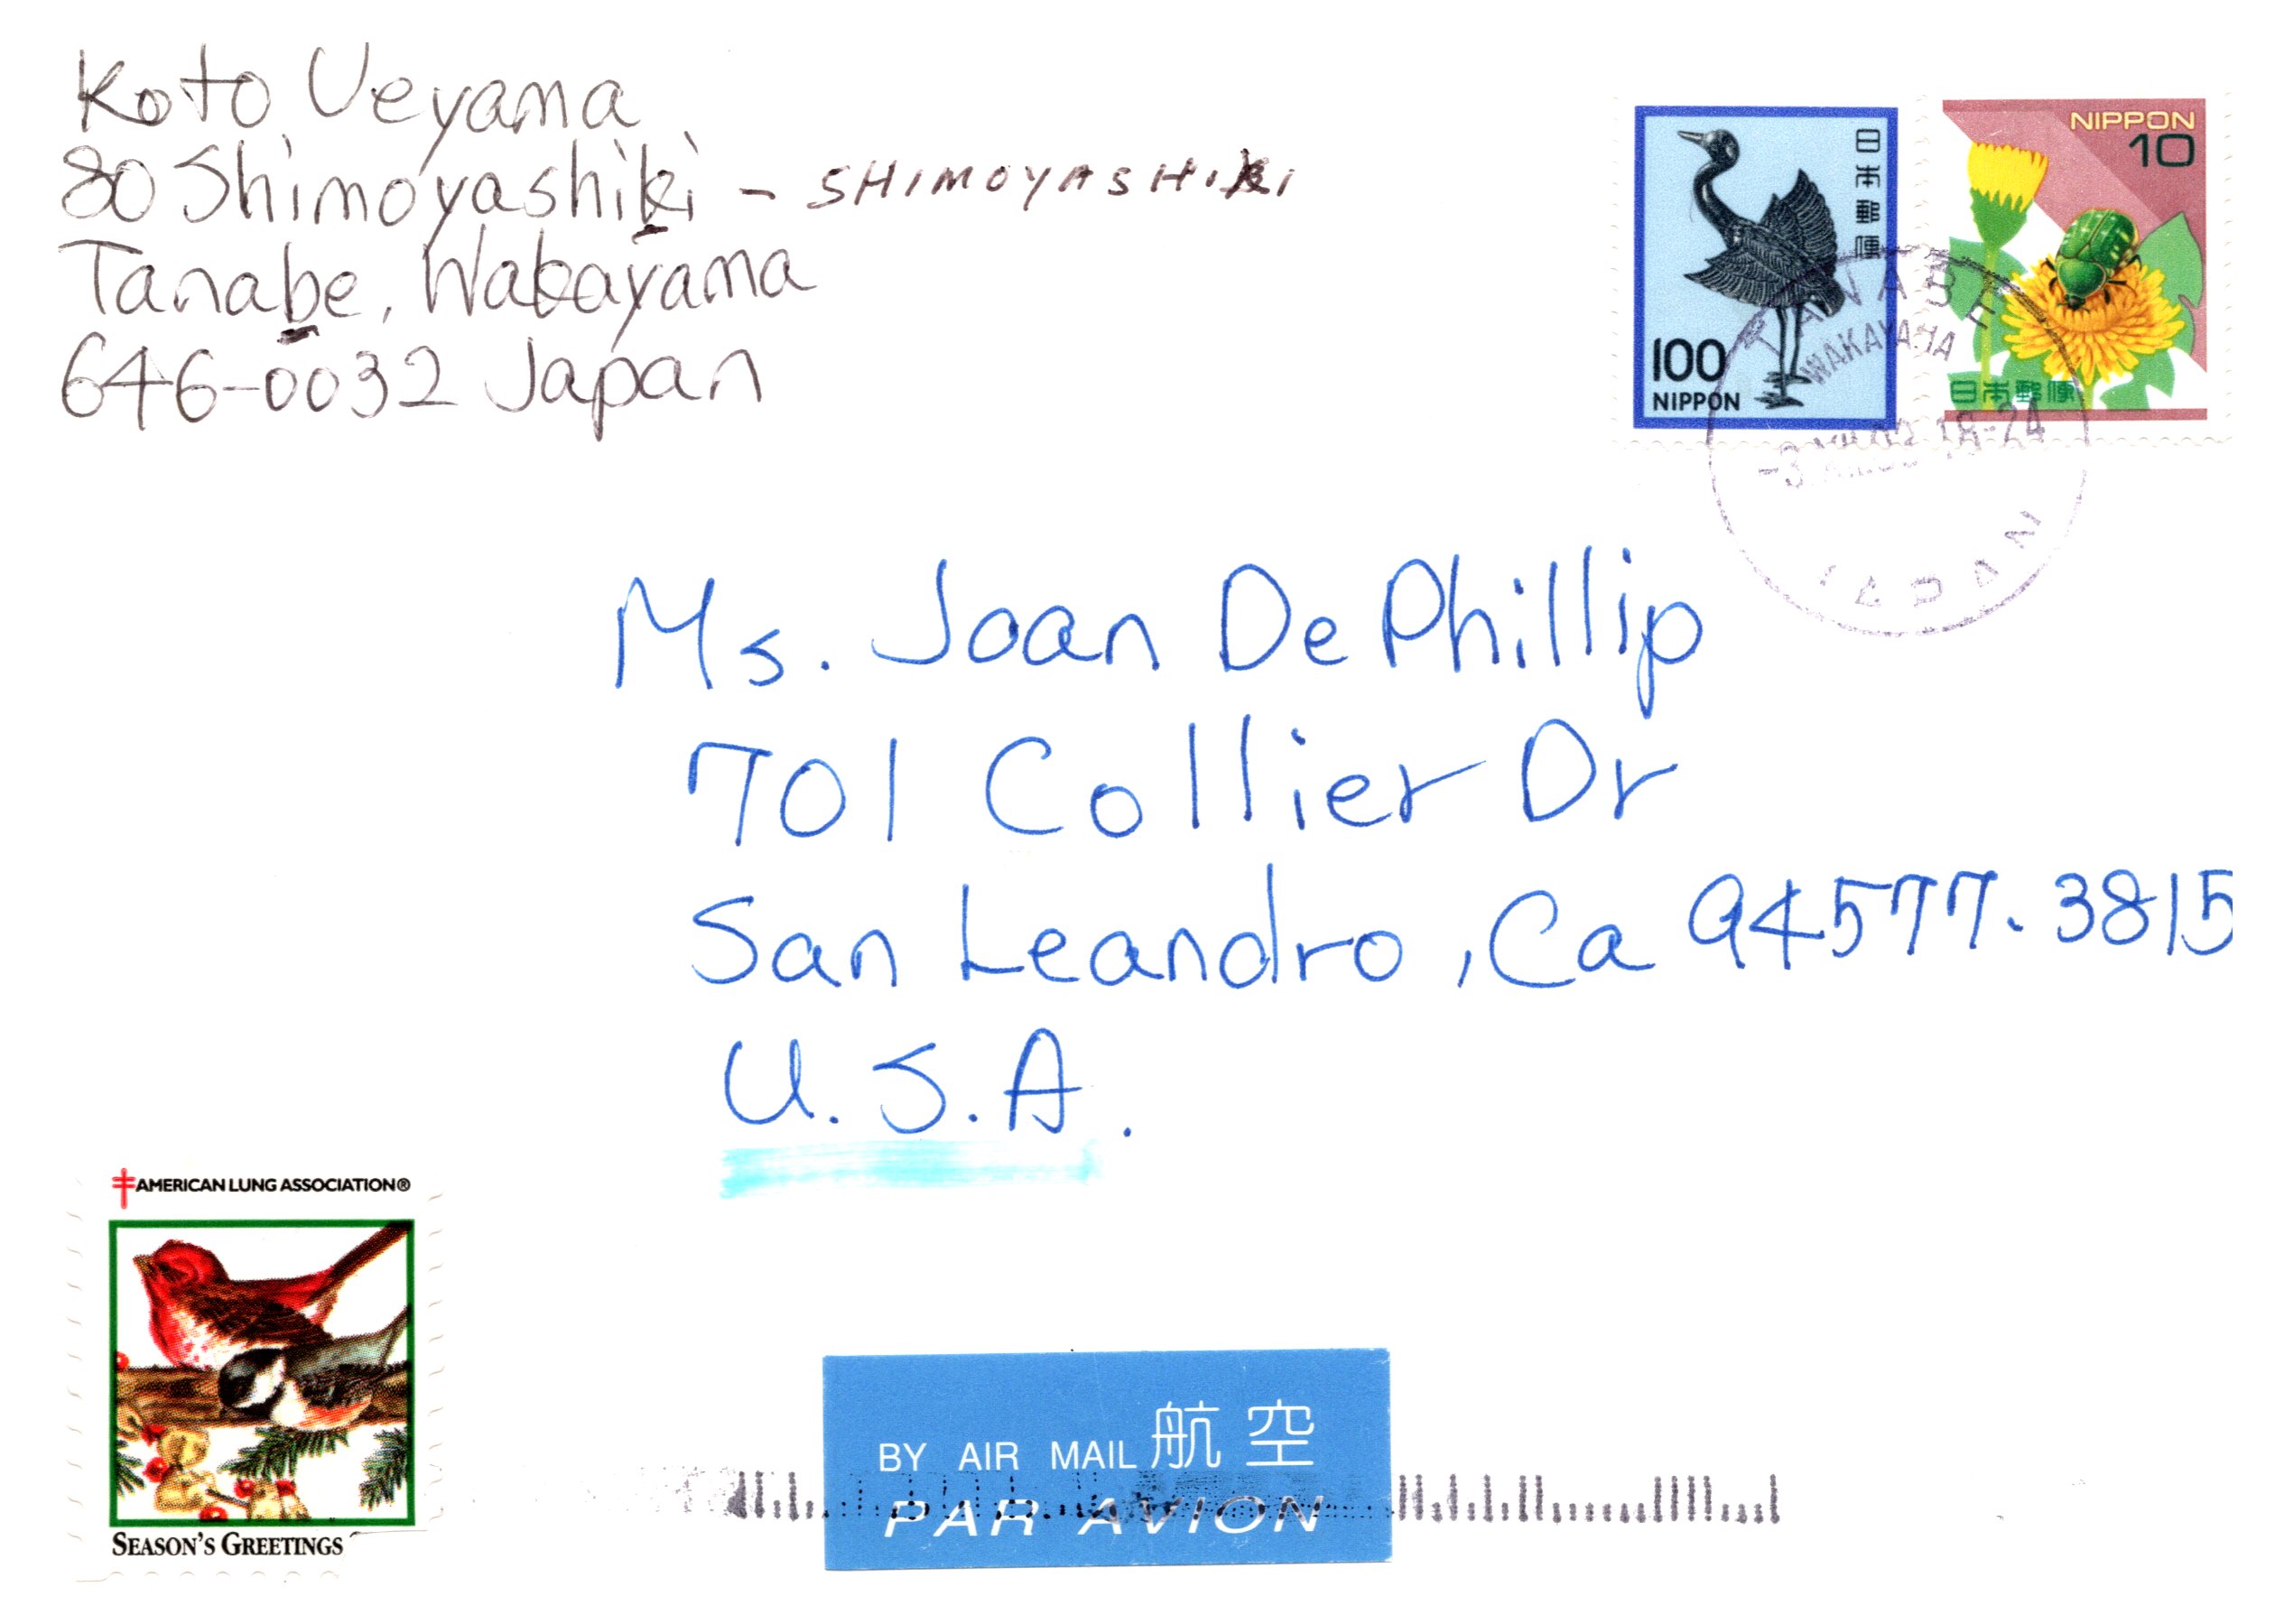 Koto Ueyama
80 Shimoyashiki - SHIMOYASHIKI
Tanabe, Wakayama
646-0032 Japan
日本郵便
100
NIPPON
NIPPON
10
日本郵便
TANABE
WAKAYAMA
18-24
JAPAN
Ms. Joan De Phillip
701 Collier Dr
San Leandro, Ca 94577.3815
U.S.A.
AMERICAN LUNG ASSOCIATION®
SEASON'S GREETINGS
BY AIR MAIL 航空
PAR AVION